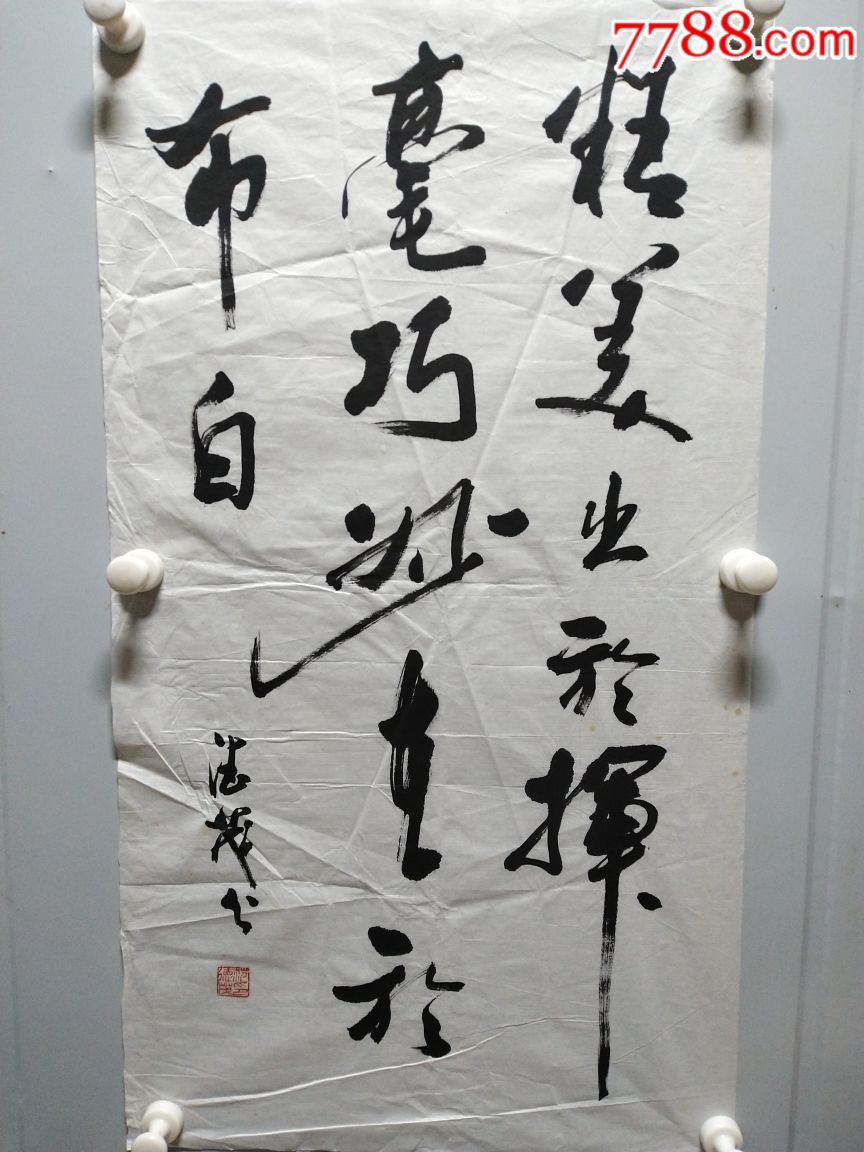 7788.com
精美出於揮
毫巧妙在於
布白
德茂书